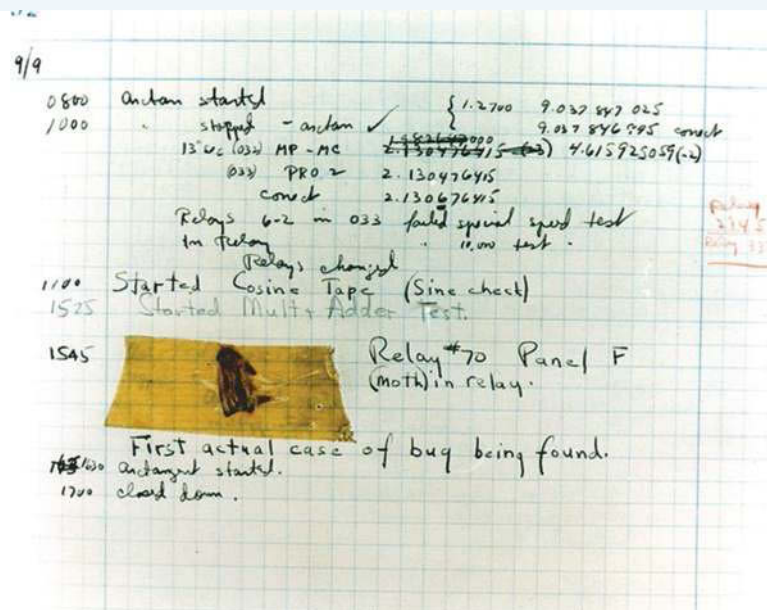 9/9
0800 antan started { 1.2700 9.037 847 025
1000 " stopped - antan ✓ 9.037 846 995 conect
13"uc (032) MP - MC 2.130476415 4.615925059(-2)
(033) PRO 2 2.130476415
conect 2.130676415
Relays 6-2 in 033 failed special speed test
In Relay " 10,000 test .
Relays changed
1100 Started Cosine Tape (Sine check)
1525 Started Mult + Adder Test.
1545 Relay #70 Panel F
(moth) in relay.
First actual case of bug being found.
1630 antangent started.
1700 closed down .
Relay